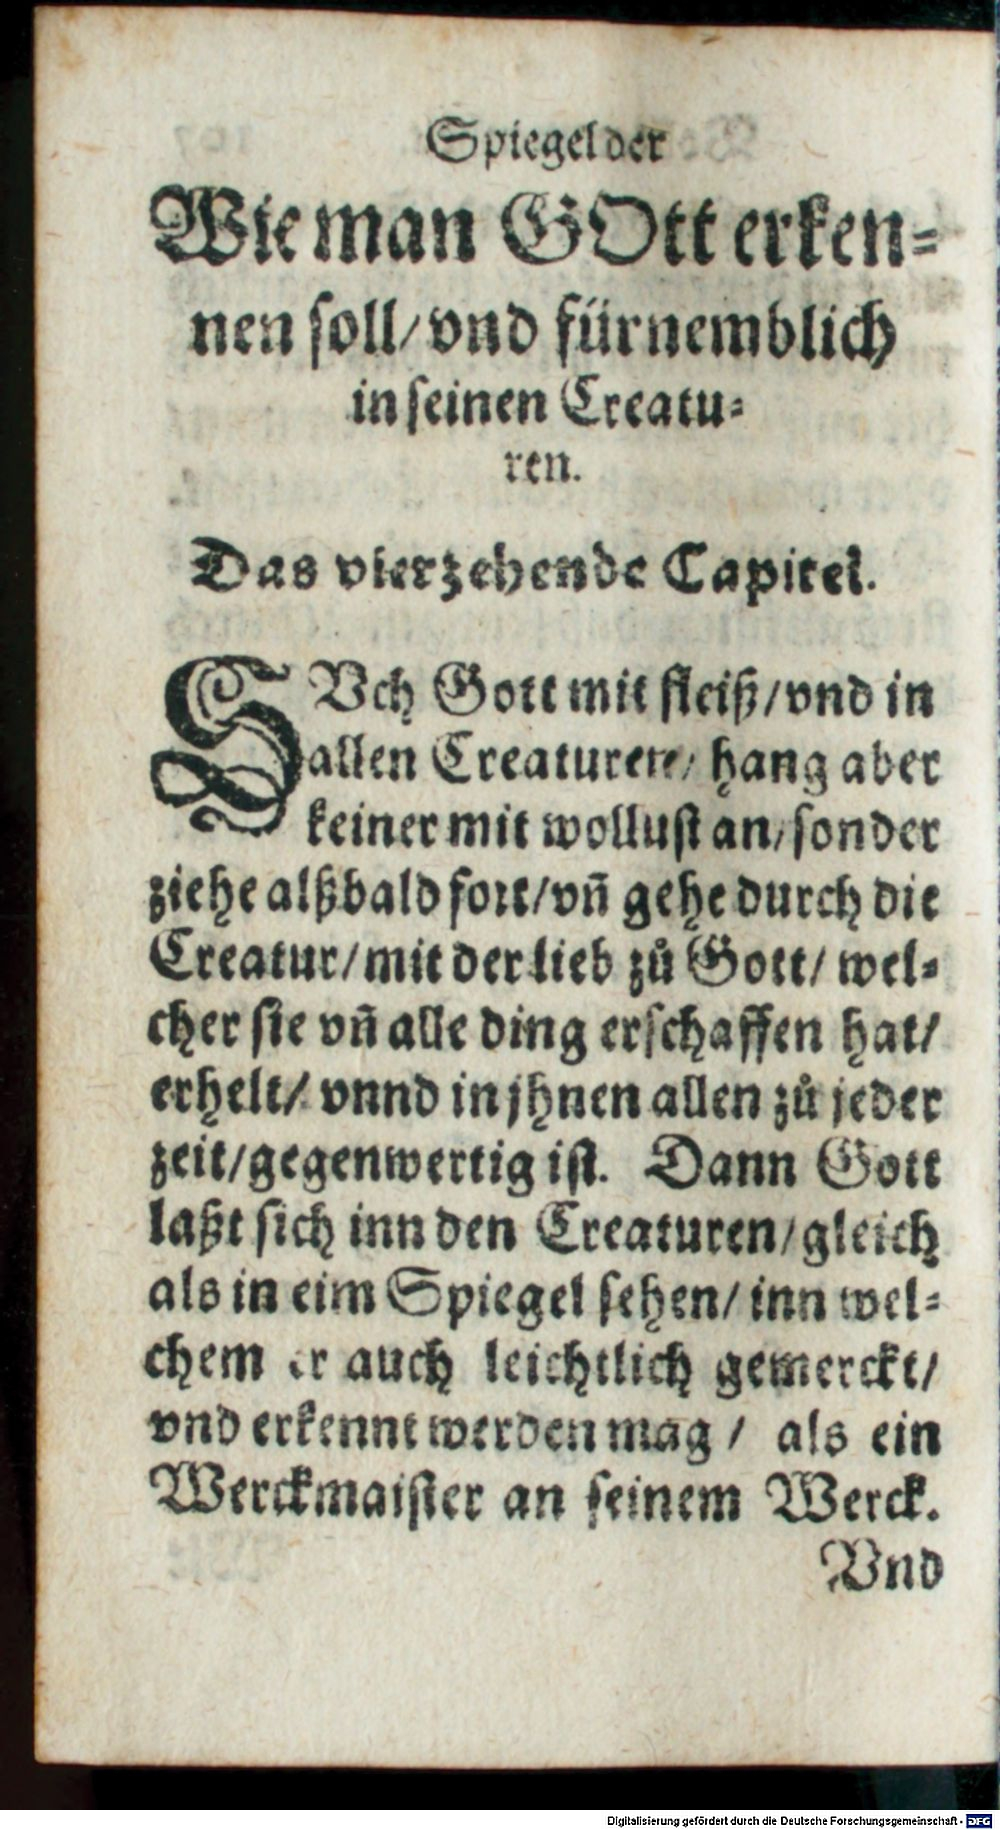 Spiegel der
Wie man GOtt erken-
nen soll/ vnd fürnemblich
in seinen Creatu-
ren.
Das vierzehende Capitel.
SVch Gott mit fleiß/ vnd in
allen Creaturen/ hang aber
keiner mit wollust an/ sonder
ziehe alßbald fort/ vñ gehe durch die
Creatur/ mit der lieb zů Gott/ wel-
cher sie vñ alle ding erschaffen hat/
erhelt/ vnnd in jhnen allen zů jeder
zeit/ gegenwertig ist. Dann Gott
laßt sich inn den Creaturen/ gleich
als in eim Spiegel sehen/ inn wel-
chem er auch leichtlich gemerckt/
vnd erkennt werden mag/ als ein
Werckmaister an seinem Werck.
Vnd
Digitalisierung gefördert durch die Deutsche Forschungsgemeinschaft - DFG